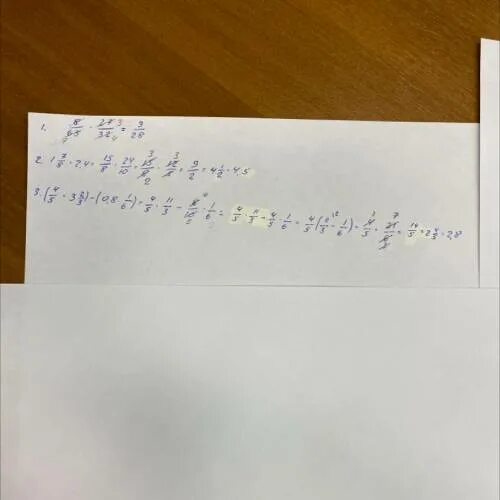 1. 8/63 · 27/32 = 3/28
2. 1 7/8 · 2,4 = 15/8 · 24/10 = 15/8 · 12/5 = 9/2 = 4 1/2 = 4,5
3. (4/5 · 3 2/3) - (0,8 · 1/6) = 4/5 · 11/3 - 8/10 · 1/6 = 4/5 · 11/3 - 4/5 · 1/6 = 4/5 (11/3 - 1/6) = 4/5 · 21/6 = 14/5 = 2 4/5 = 2,8